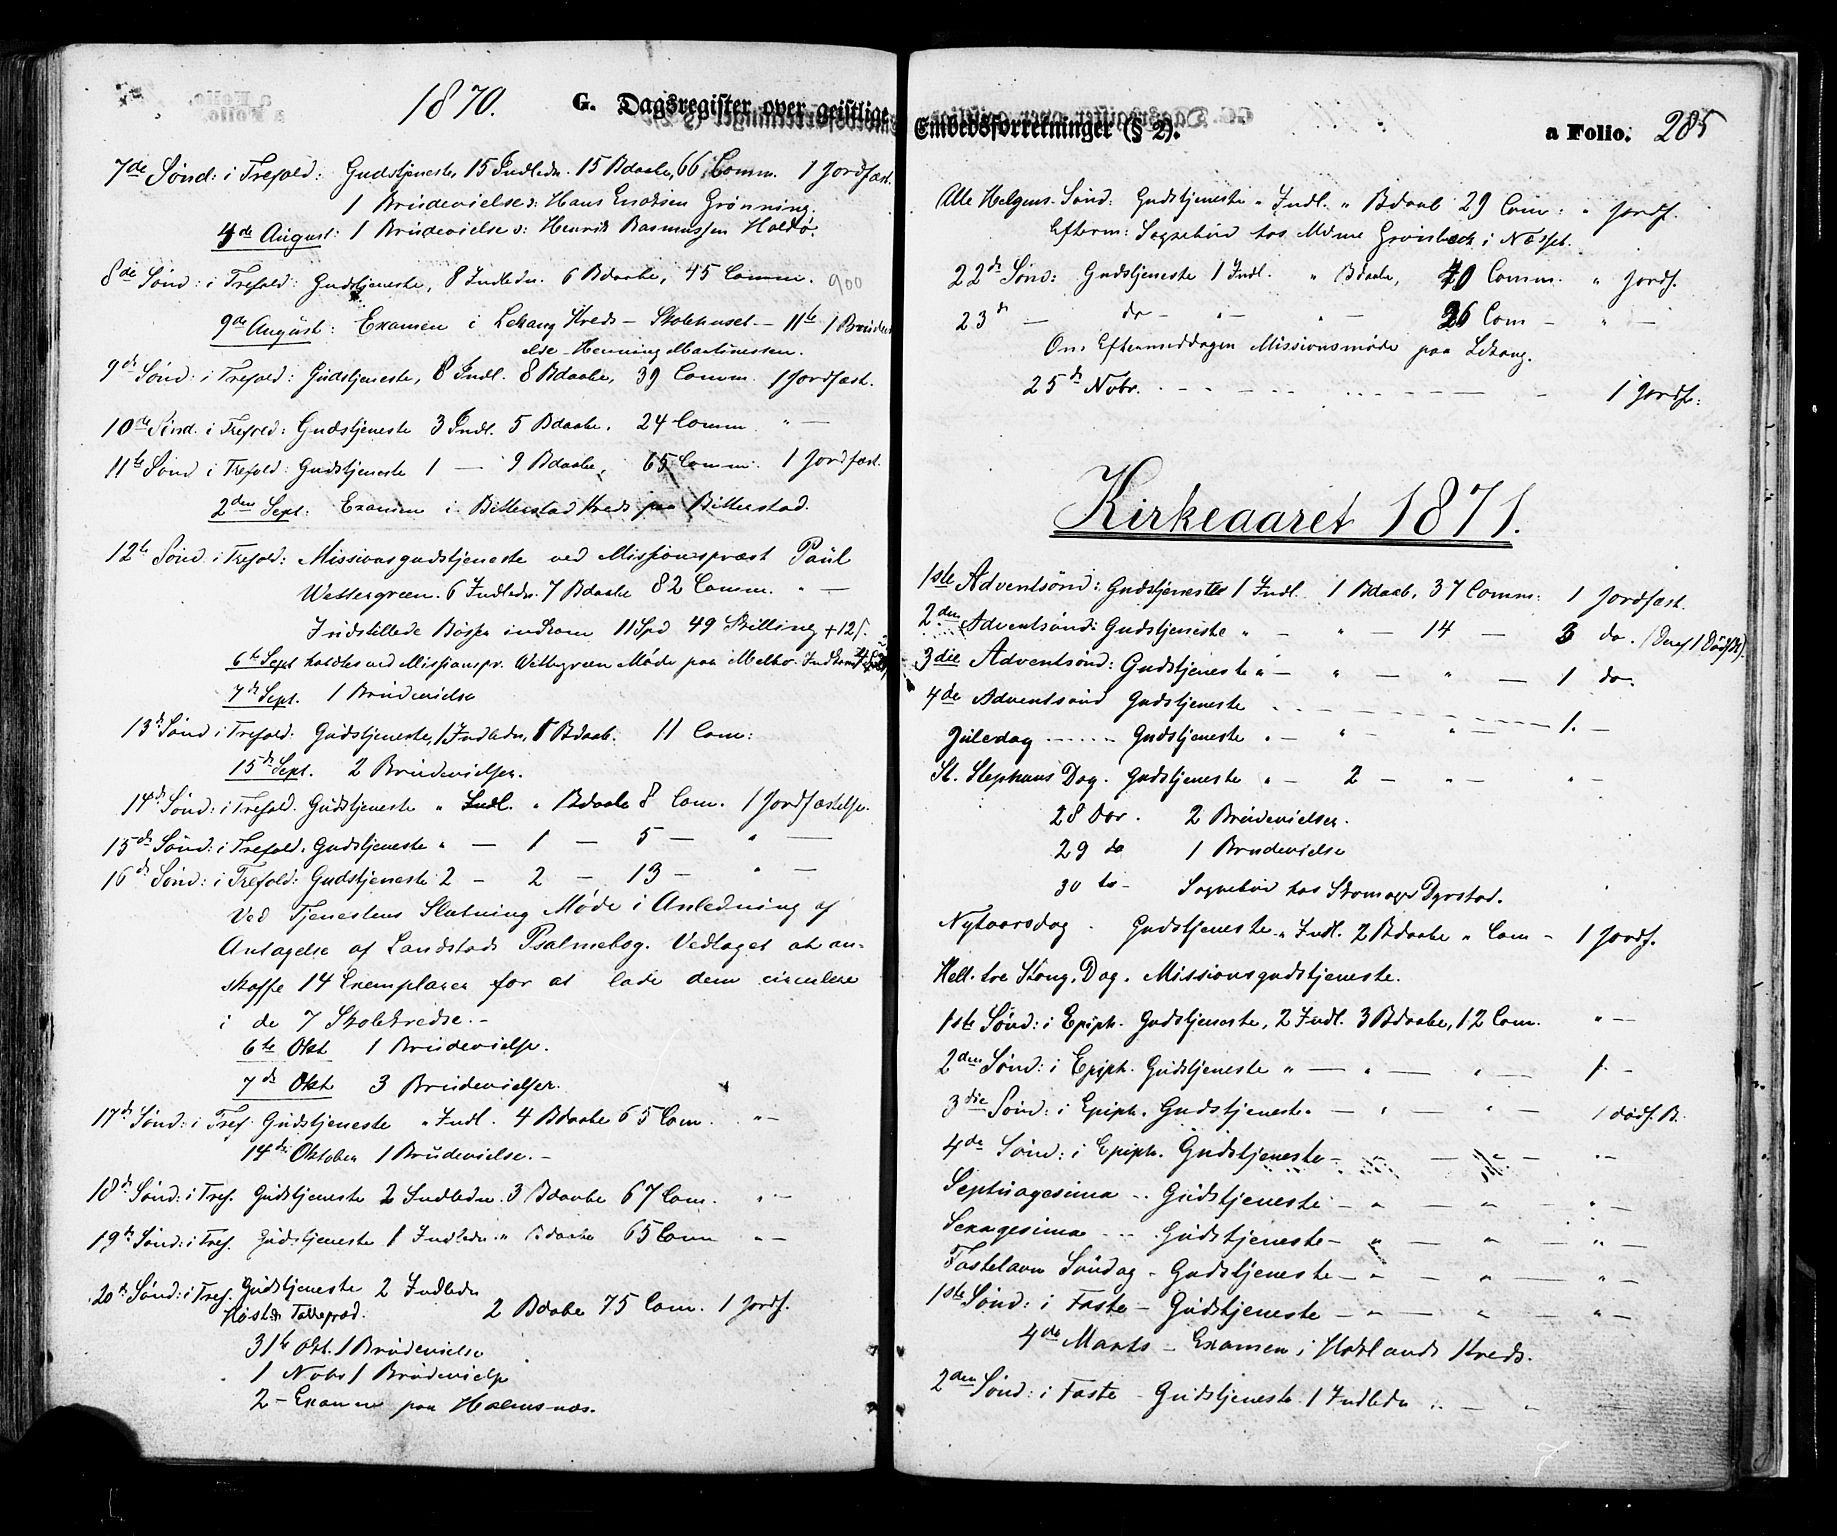 1870. G. Dagsregister over geistlige
7de Sønd: i Trefold: Gudstjeneste, 15 Indledn. 15 Bdaabe, 66 Comm. 1 Jordfæst.
1 Brudevielse: Hans Enoksen Grønning.
4de August: 1 Brudevielse: Henrik Rasmussen Holdø.
8de Sønd: i Trefold: Gudstjeneste, 8 Indledn. 6 Bdaabe, 45 Comm. 900
9de August: Examen i Lekang Kreds – Skolehuset. – 11te 1 Brudevi
else Henning Martinussen.
9de Sønd: i Trefold: Gudstjeneste, 8 Indl. 8 Bdaabe, 39 Comm. 1 Jordfæst.
10de Sønd. i Trefold: Gudstjeneste 3 Indl. 5 Bdaabe. 24 Comm. " —
11te Sønd i Trefold: Gudstjeneste 1 — 9 Bdaabe, 65 Comm. 1 Jordfæst.
2den Sept: Examen i Bitterstad Kreds paa Bitterstad.
12te Sønd i Trefold: Missionsgudstjeneste ved Missionspræst Paul
Wettergreen. 6 Indledn. 7 Bdaabe 82 Comm. " —
Indstillede Bøsser indkom 11 Spd 49 Skilling + 12 s.
6te Sept holdtes ved Missionspr. Wettegreen Møde paa Melbo. Indkom
7de Sept. 1 Brudevielse
13de Sønd i Trefold: Gudstjeneste, 1 Indledn, 1 Bdaab. 11 Com:
15de Sept. 2 Brudevielser.
14de Sønd: i Trefold. Gudstjeneste " Indl. " Bdaabe 8 Com. 1 Jordfæstelse.
15de Sønd: i Trefold. Gudstjeneste " — 1 — 5 — " —
16de Sønd: i Trefold: Gudstjeneste 2 — 2 — 13 — " —
Ved Tjenestens Slutning Møde i Anledning af
Antagelse af Landstads Psalmebog. Vedtaget at an-
skaffe 14 Exemplarer for at lade dem circulere
i de 7 Skolekredse. –
6te Okt 1 Brudevielse.
7de Okt 3 Brudevielser.
17de Sønd: i Tref. Gudstjeneste " Indl. 4 Bdaabe 65 Com. " —
14de Oktober 1 Brudevielse. –
18de Sønd: i Tref. Gudstjeneste 2 Indledn. 3 Bdaabe 67 Com. " —
19de Sønd: i Tref. Gudstjeneste 1 Indledn. " Bdaabe 65 Com " —
20de Sønd: i Tref. Gudstjeneste 2 Indledn
Høst & Takkepræd. 2 Bdaabe 75 Com. 1 Jordf.
31te Okt. 1 Brudevielse
1 Nobr 1 Brudevielse
2 – Examen paa Holmsnæs.
Embedsforretninger (§ 2). a Folio. 285
Alle Helgens. Sønd: Gudstjeneste " Indl. " Bdaab 29 Com: " Jordf.
Efterm: Sognebud hos Mdme Grønbeck i Næsset.
22de Sønd: Gudstjeneste 1 Indl. " Bdaabe, 40 Comm. " Jordf.
23de — do — " — " — 36 Com — " —
Om Eftermiddagen Missionsmøde paa Lekang.
25de Nobr. — 1 Jordf:
Kirkeaaret 1871.
1ste Adventsønd: Gudstjeneste 1 Indl. 1 Bdaab, 37 Comm: 1 Jordfæst.
2den Adventsønd: Gudstjeneste " — " — 14 — 3 do. (Deraf 1 Dødfdt).
3die Adventsønd: Gudstjeneste " — " — " — 1 do.
4de Adventsønd Gudstjeneste — 1. —
Juledag ...... Gudstjeneste " — " — " — 1. —
St. Stephans Dag. Gudstjeneste " — 2 — " — " —
28 Dcr. 2 Brudevielser.
29 do 1 Brudevielse
30 do – Sognebud hos Skomager Dyrstad.
Nytaarsdag . Gudstjeneste " Indl. 2 Bdaabe " Com – 1 Jordf.
Hell. tre Kong. Dag. Missionsgudstjeneste.
1ste Sønd: i Epiph. Gudstjeneste, 2 Indl. 3 Bdaabe, 12 Com. " —
2den Sønd: i Epiph. Gudstjeneste " — " — " — 1 –
3die Sønd: i Epiph. Gudstjeneste " — " — " — 1 dødf. B.
4de Sønd: i Epiph. Gudstjeneste — " — " — " —
Septuagesima – Gudstjeneste — " — " — " —
Sexagesima – Gudstjeneste — " — " — " —
Fastelavn Søndag – Gudstjeneste — " — " — " —
1ste Sønd: i Faste – Gudstjeneste — " — " — " —
4de Marts – Examen i Hokland Kreds.
2den Sønd: i Faste – Gudstjeneste 1 Indledn " — " —